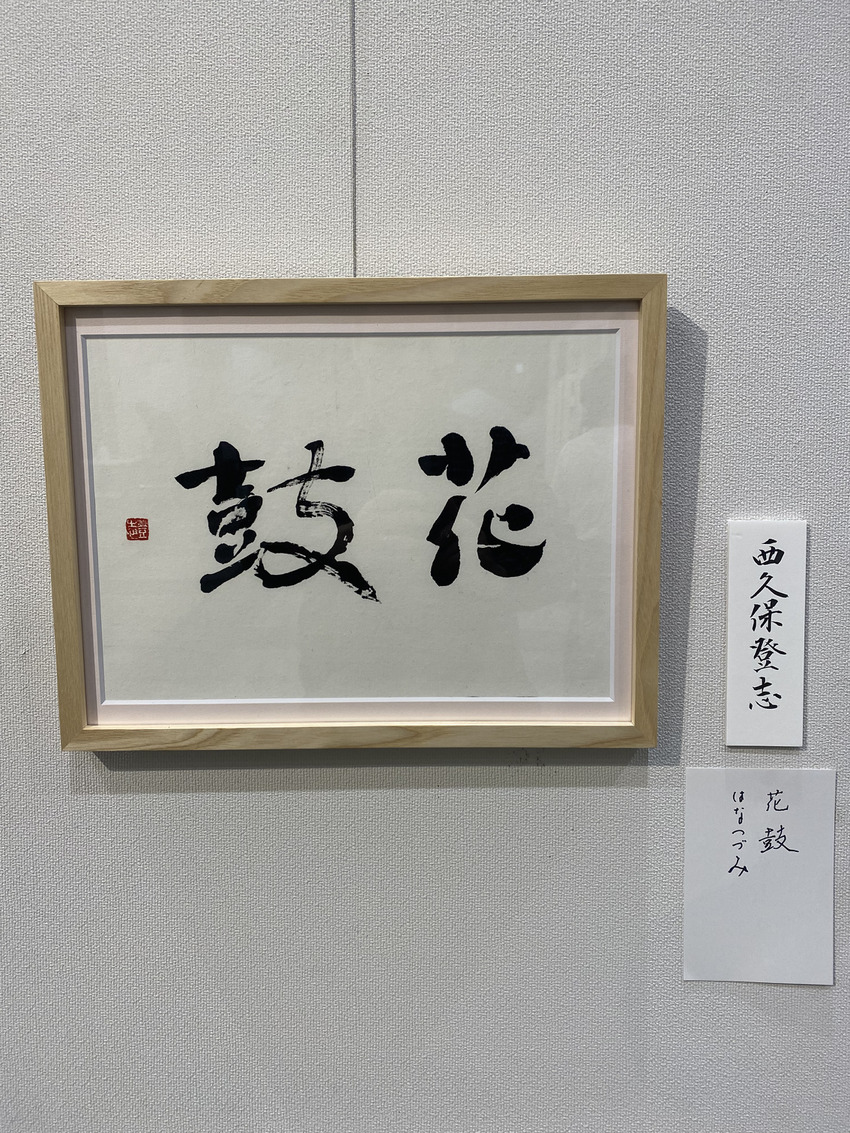 花鼓
西久保登志
花鼓
はなつづみ